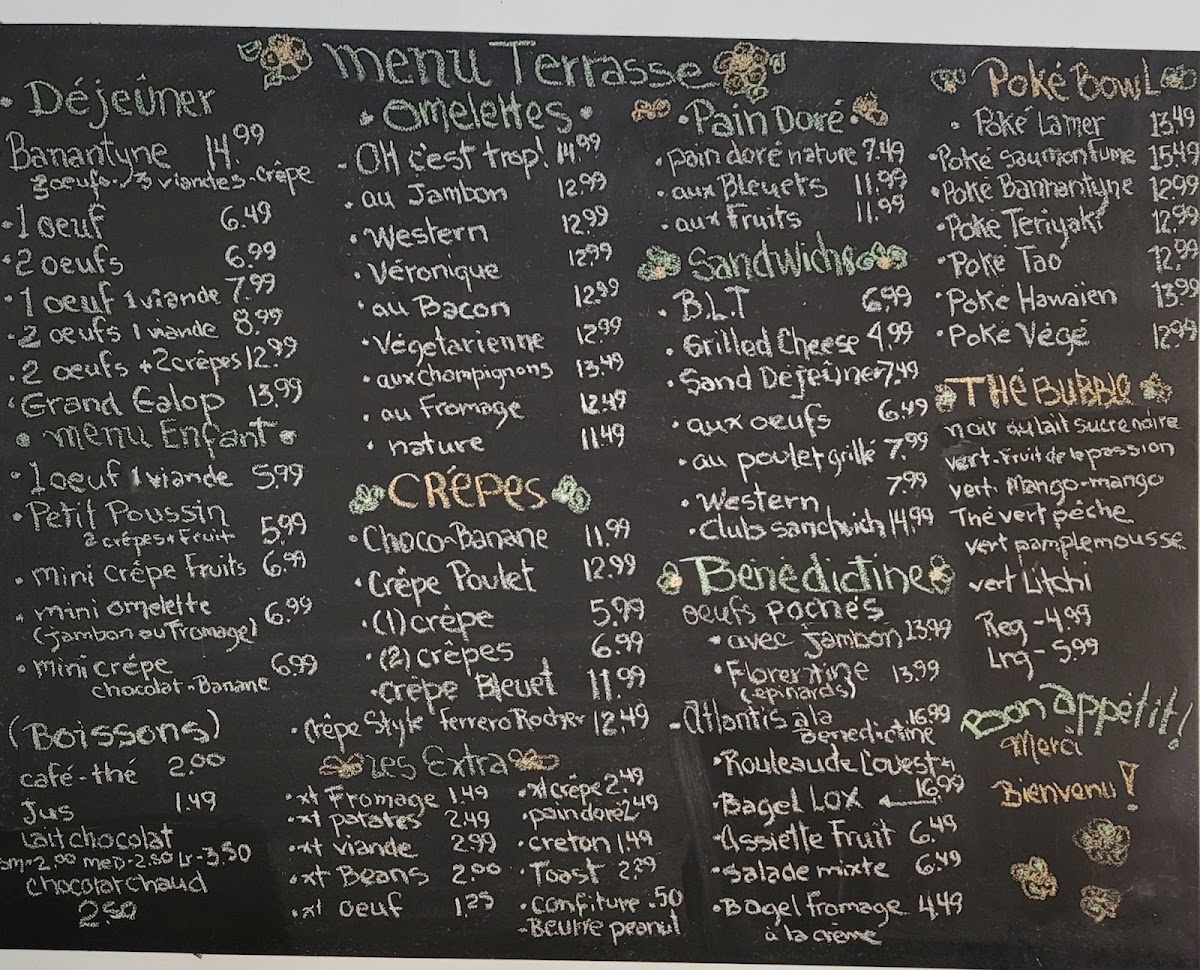 Menu Terrasse
• Déjeûner
Banantyne 14.99
3 oeufs - 3 viandes - crêpe
• 1 oeuf 6.49
• 2 oeufs 6.99
• 1 oeuf 1 viande 7.99
• 2 oeufs 1 viande 8.99
• 2 oeufs + 2 crêpes 12.99
• Grand Galop 13.99
• menu Enfant •
• 1 oeuf 1 viande 5.99
• Petit Poussin 5.99
2 crêpes + Fruit
• mini crêpe Fruits 6.99
• mini omelette 6.99
(jambon ou Fromage)
• mini crêpe 6.99
chocolat - Banane
(Boissons)
café-thé 2.00
Jus 1.49
Lait chocolat
sm-2.00 med-2.50 Lr-3.50
chocolat chaud
2.50
• Omelettes •
- OH c'est trop! 14.99
• au Jambon 12.99
• Western 12.99
• Véronique 12.99
• au Bacon 12.99
• Végétarienne 12.99
• aux champignons 13.49
• au Fromage 12.49
• nature 11.49
CRÊPES
• Choco-Banane 11.99
• Crêpe Poulet 12.99
• (1) crêpe 5.99
• (2) crêpes 6.99
• crêpe Bleuet 11.99
• crêpe Style Ferrero Rocher 12.49
Les Extra
• xt Fromage 1.49
• xt patates 2.49
• xt viande 2.99
• xt Beans 2.00
• xt oeuf 1.25
• xt crêpe 2.49
• pain doré 2.49
• creton 1.49
• Toast 2.29
• confiture .50
- Beurre peanut
• Pain Doré •
• pain doré nature 7.49
• aux Bleuets 11.99
• aux Fruits 11.99
Sandwichs
• B.L.T 6.99
• Grilled Cheese 4.99
• Sand Déjeûner 7.49
• aux oeufs 6.49
• au poulet grillé 7.99
• Western 7.99
• Club sandwich 14.99
Bénédictine
oeufs pochés
• avec jambon 13.99
• Florentine 13.99
(épinards)
- Atlantis à la 16.99
Bénédictine
• Rouleau de L'ouest
• Bagel Lox 16.99
• Assiette Fruit 6.49
• Salade mixte 6.49
• Bagel fromage 4.49
à la crème
Poké Bowl
• Poké La mer 13.49
• Poké saumon fume 15.49
• Poké Bannantyne 12.99
• Poké Teriyaki 12.99
• Poké Tao 12.99
• Poké Hawaïen 13.99
• Poké Végé 12.99
THÉ BUBBLE
noir au lait sucre noire
vert-fruit de la passion
vert. Mango-mango
Thé vert pêche
vert pamplemousse
vert Litchi
Reg - 4.99
Lrg - 5.99
Bon appétit!
Merci
Bienvenu!